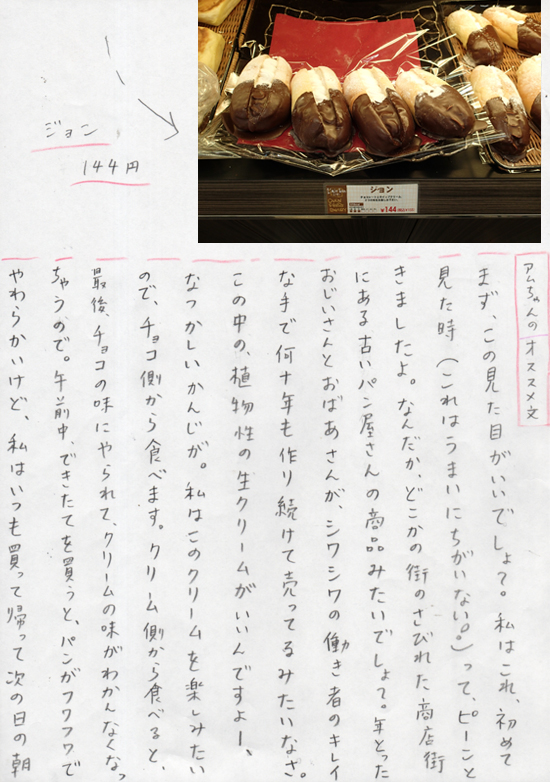 ジョン
144円
ジョン
¥144
アムちゃんのオススメ文
まず、この見た目がいいでしょ?。私はこれ、初めて
見た時(これはうまいにちがいない。)って、ピーンと
きましたよ。なんだか、どこかの街のさびれた商店街
にある古いパン屋さんの商品みたいでしょ?。年とった
おじいさんとおばあさんが、シワシワの働き者のキレイ
な手で何十年も作り続けて売ってるみたいなさ。
この中の、植物性の生クリームがいいんですよー、
なつかしいかんじが。私はこのクリームを楽しみたい
ので、チョコ側から食べます。クリーム側から食べると、
最後、チョコの味にやられて、クリームの味がわかんなくなっ
ちゃうので。午前中、できたてを買うと、パンがフワフワで
やわらかいけど、私はいつも買って帰って次の日の朝